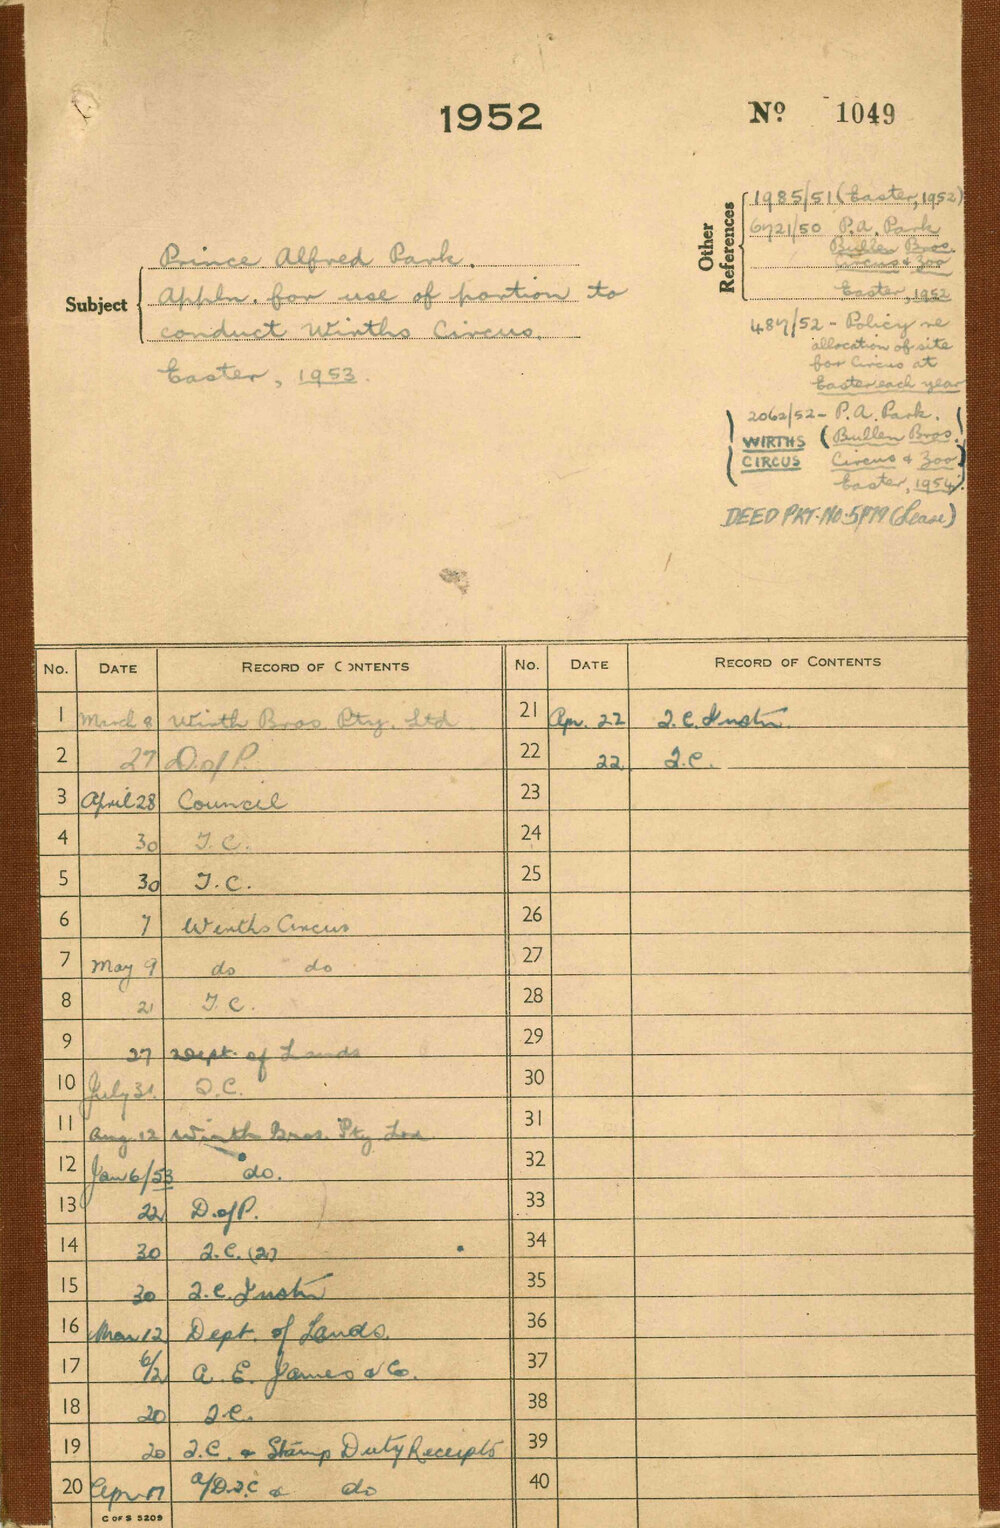 1952
Nº 1049
Other References
1985/51 (Easter, 1952)
6721/50 P.A. Park
Bullen Bros.
Circus & Zoo
Easter, 1952
487/52 - Policy re
allocation of site
for Circus at
Easter each year
2062/52 - P.A. Park.
WIRTHS (Bullen Bros.
CIRCUS Circus & Zoo)
Easter, 1954
DEED PKT. No. (Lease)
Subject
Prince Alfred Park.
Appln. for use of portion to
conduct Wirths Circus,
Easter, 1953.
No. DATE RECORD OF CONTENTS
1 March 8 Wirth Bros Pty. Ltd
2 27 D. of P.
3 April 28 Council
4 30 T.C.
5 30 T.C.
6 7 Wirths Circus
7 May 9 do do
8 21 T.C.
9 27 Dept. of Lands
10 July 31 T.C.
11 Aug. 12 Wirth Bros. Pty Ltd
12 Jan 6/53 do.
13 22 D. of P.
14 30 T.C. (2)
15 30 T.C. Instn
16 Mar 12 Dept. of Lands.
17 6/2 A. E. James & Co.
18 20 T.C.
19 20 T.C. & Stamp Duty Receipts
20 Apr 17 do
C OF S 5209
No. DATE RECORD OF CONTENTS
21 Apr. 22 T.C. Instn.
22 22 T.C.
23
24
25
26
27
28
29
30
31
32
33
34
35
36
37
38
39
40